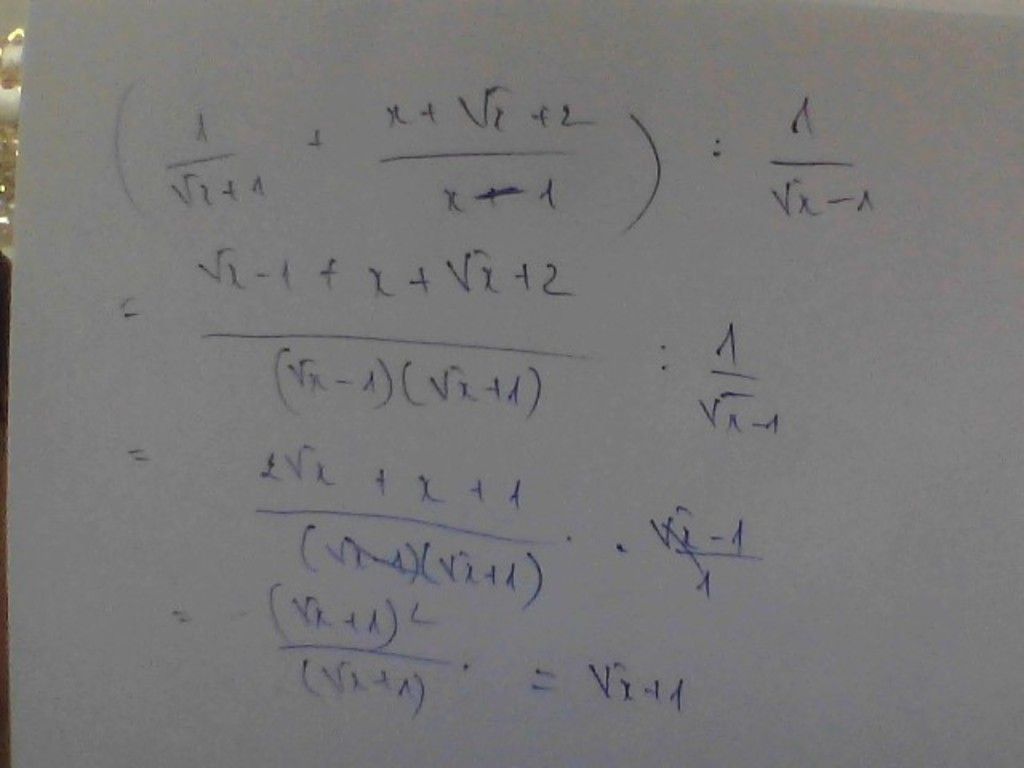 ( 1/(√x+1) + (x+√x+2)/(x-1) ) : 1/(√x-1)
= (√x-1+x+√x+2)/((√x-1)(√x+1)) : 1/(√x-1)
= (2√x+x+1)/((√x-1)(√x+1)) . (√x-1)/1
= (√x+1)²/(√x+1) = √x+1